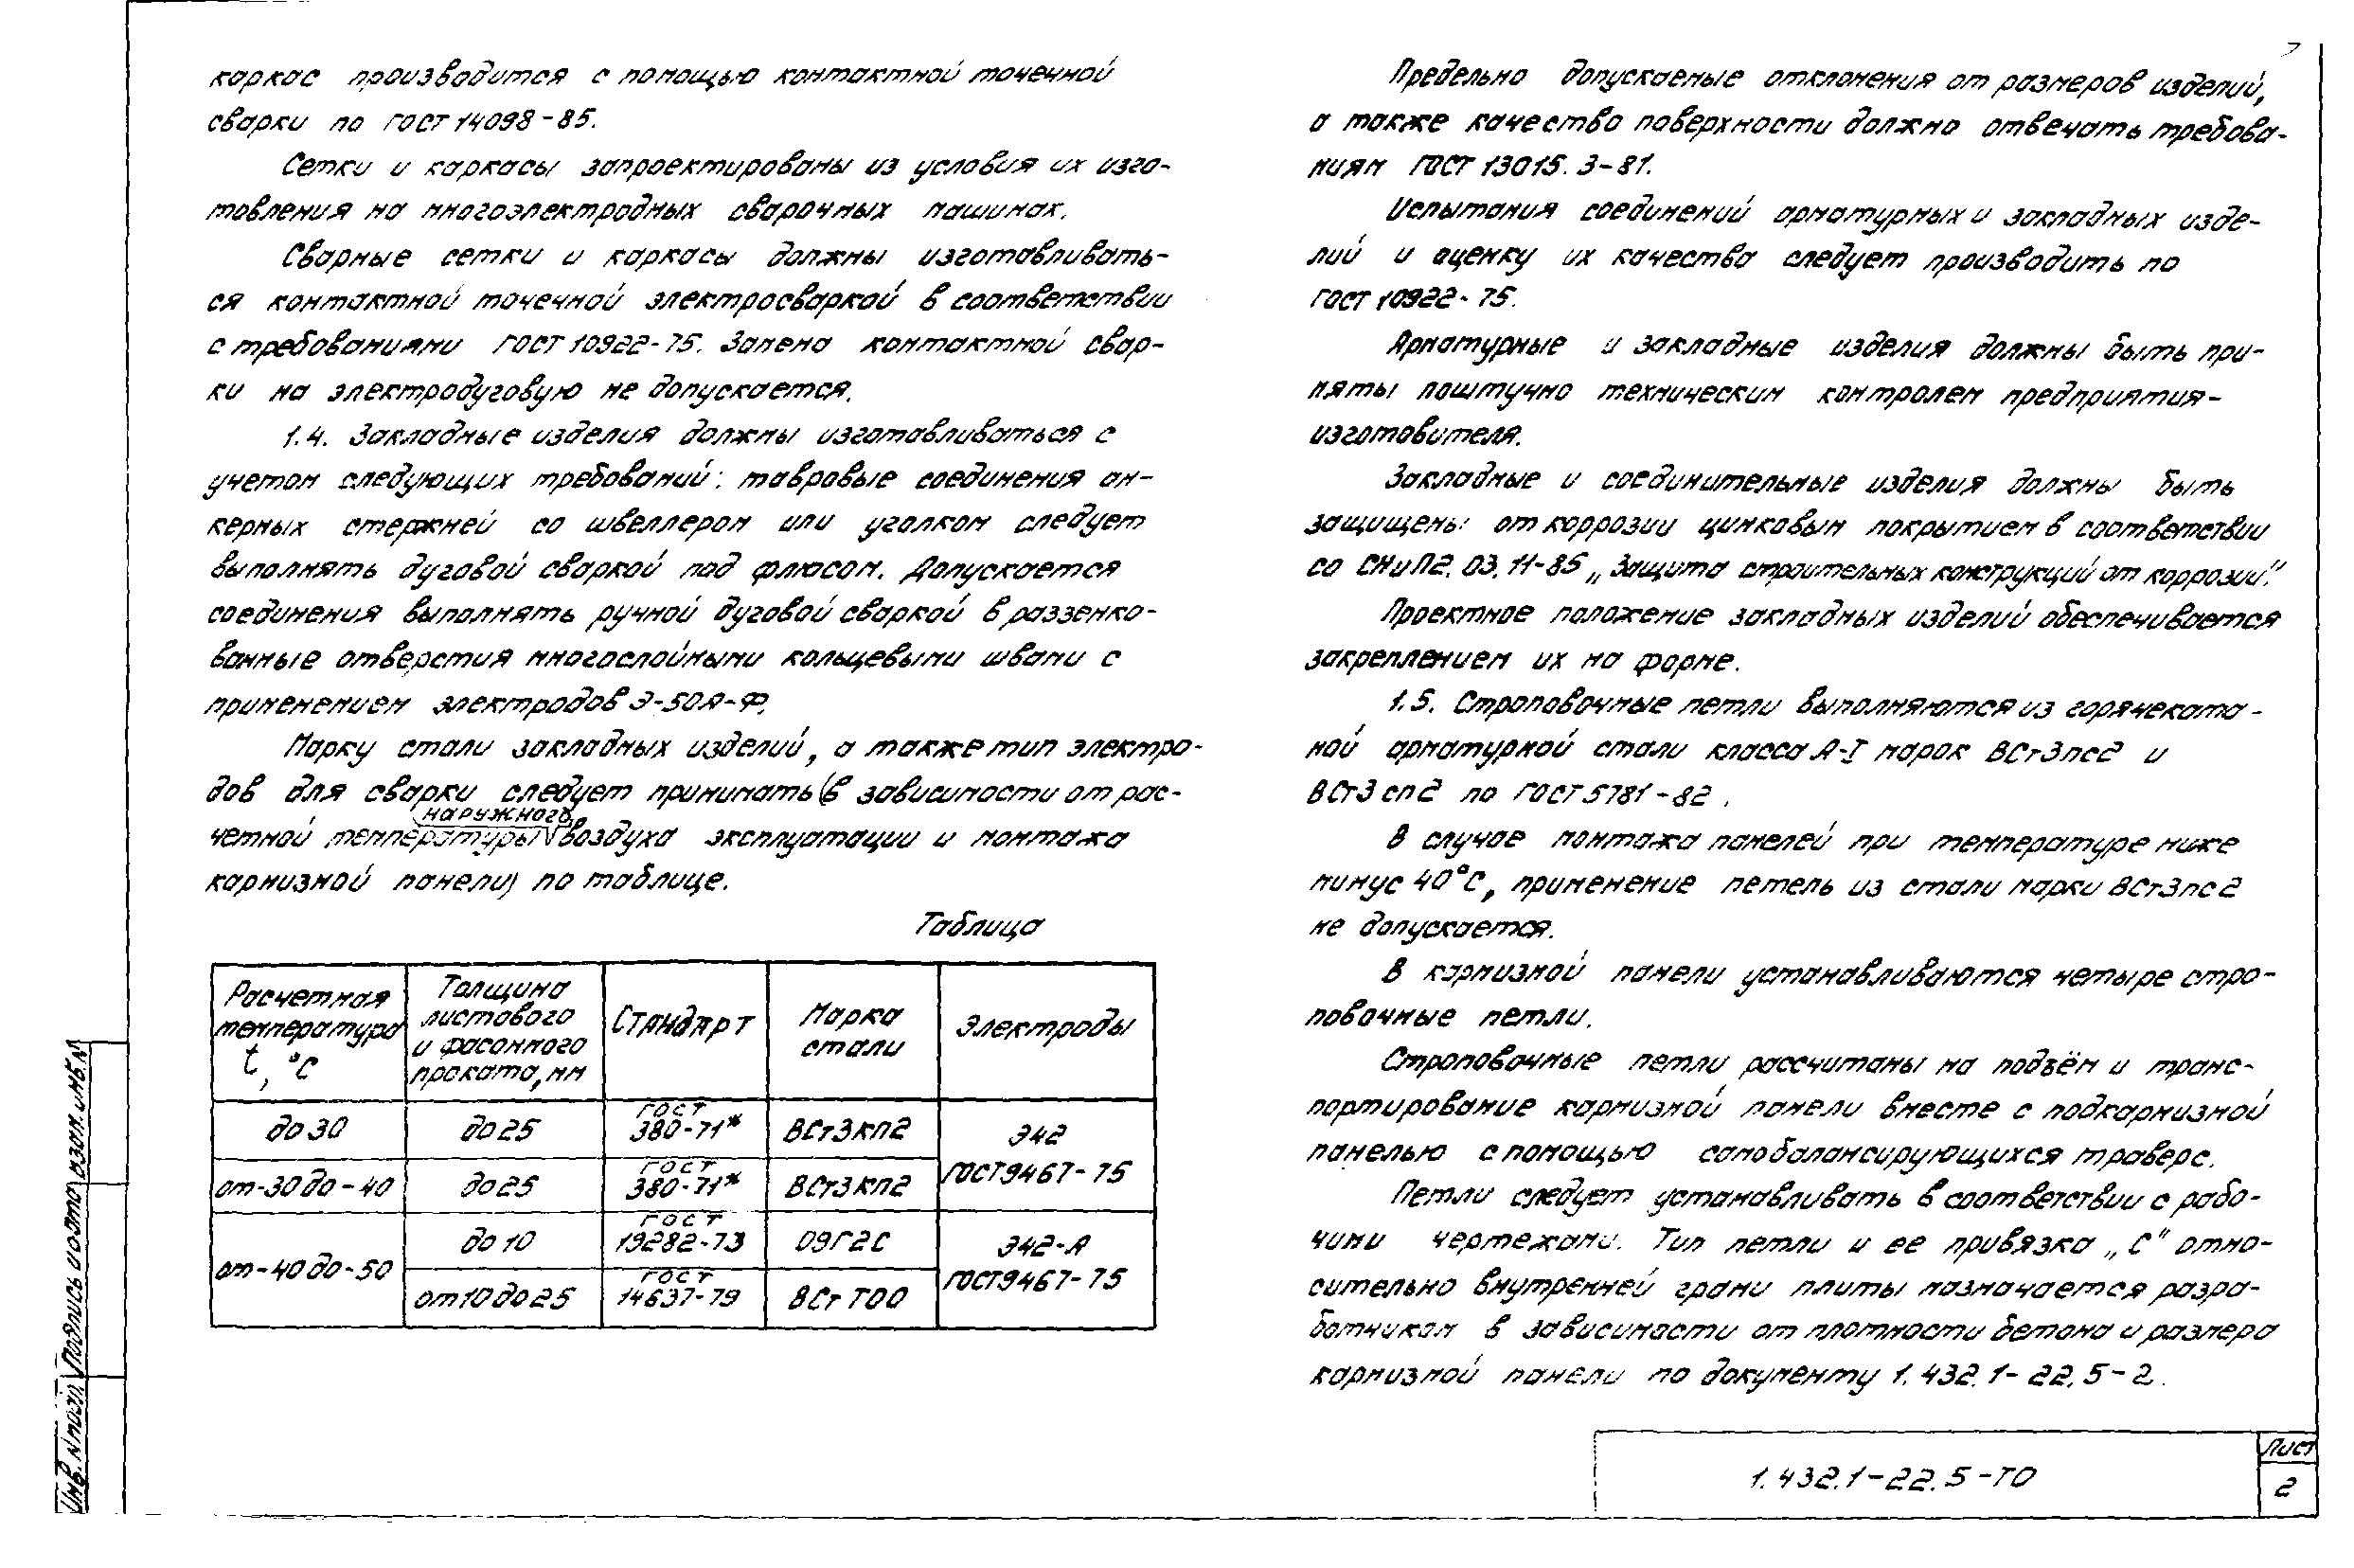 каркас производится с помощью контактной точечной
сварки по ГОСТ 14098-85.
Сетки и каркасы запроектированы из условия их изго-
товления на многоэлектродных сварочных машинах.
Сварные сетки и каркасы должны изготавливать-
ся контактной точечной электросваркой в соответствии
с требованиями ГОСТ 10922-75. Замена контактной свар-
ки на электродуговую не допускается.
1.4. Закладные изделия должны изготавливаться с
учетом следующих требований: тавровые соединения ан-
керных стержней со швеллером или уголком следует
выполнять дуговой сваркой под флюсом. Допускается
соединения выполнять ручной дуговой сваркой в раззенко-
ванные отверстия многослойными кольцевыми швами с
применением электродов Э-50А-Ф.
Марку стали закладных изделий, а также тип электро-
дов для сварки следует принимать (в зависимости от рас-
наружного
четной температуры воздуха эксплуатации и монтажа
карнизной панели) по таблице.
Таблица
Расчетная
температура
t, °С
Толщина
листового
и фасонного
проката, мм
Стандарт
Марка
стали
Электроды
до 30
до 25
ГОСТ
380-71*
ВСт3кп2
Э42
ГОСТ 9467-75
от -30 до -40
до 25
ГОСТ
380-71*
ВСт3кп2
от -40 до -50
до 10
ГОСТ
19282-73
09Г2С
Э42-А
ГОСТ 9467-75
от 10 до 25
ГОСТ
14637-79
ВСт Т00
7
Предельно допускаемые отклонения от размеров изделий,
а также качество поверхности должно отвечать требова-
ниям ГОСТ 13015.3-81.
Испытания соединений арматурных и закладных изде-
лий и оценку их качества следует производить по
ГОСТ 10922-75.
Арматурные и закладные изделия должны быть при-
няты поштучно техническим контролем предприятия-
изготовителя.
Закладные и соединительные изделия должны быть
защищены от коррозии цинковым покрытием в соответствии
со СНиП2.03.11-85 „Защита строительных конструкций от коррозии".
Проектное положение закладных изделий обеспечивается
закреплением их на форме.
1.5. Строповочные петли выполняются из горячеката-
ной арматурной стали класса А-I марок ВСт3пс2 и
ВСт3сп2 по ГОСТ 5781-82.
В случае монтажа панелей при температуре ниже
минус 40°С, применение петель из стали марки ВСт3пс2
не допускается.
В карнизной панели устанавливаются четыре стро-
повочные петли.
Строповочные петли рассчитаны на подъём и транс-
портирование карнизной панели вместе с подкарнизной
панелью с помощью самобалансирующихся траверс.
Петли следует устанавливать в соответствии с рабо-
чими чертежами. Тип петли и ее привязка „С" отно-
сительно внутренней грани плиты назначается разра-
ботчиком в зависимости от плотности бетона и размера
карнизной панели по документу 1.432.1-22.5-2.
1.432.1-22.5-ТО
Лист
2
Инв. N подл.
Подпись и дата
Взам. инв. N